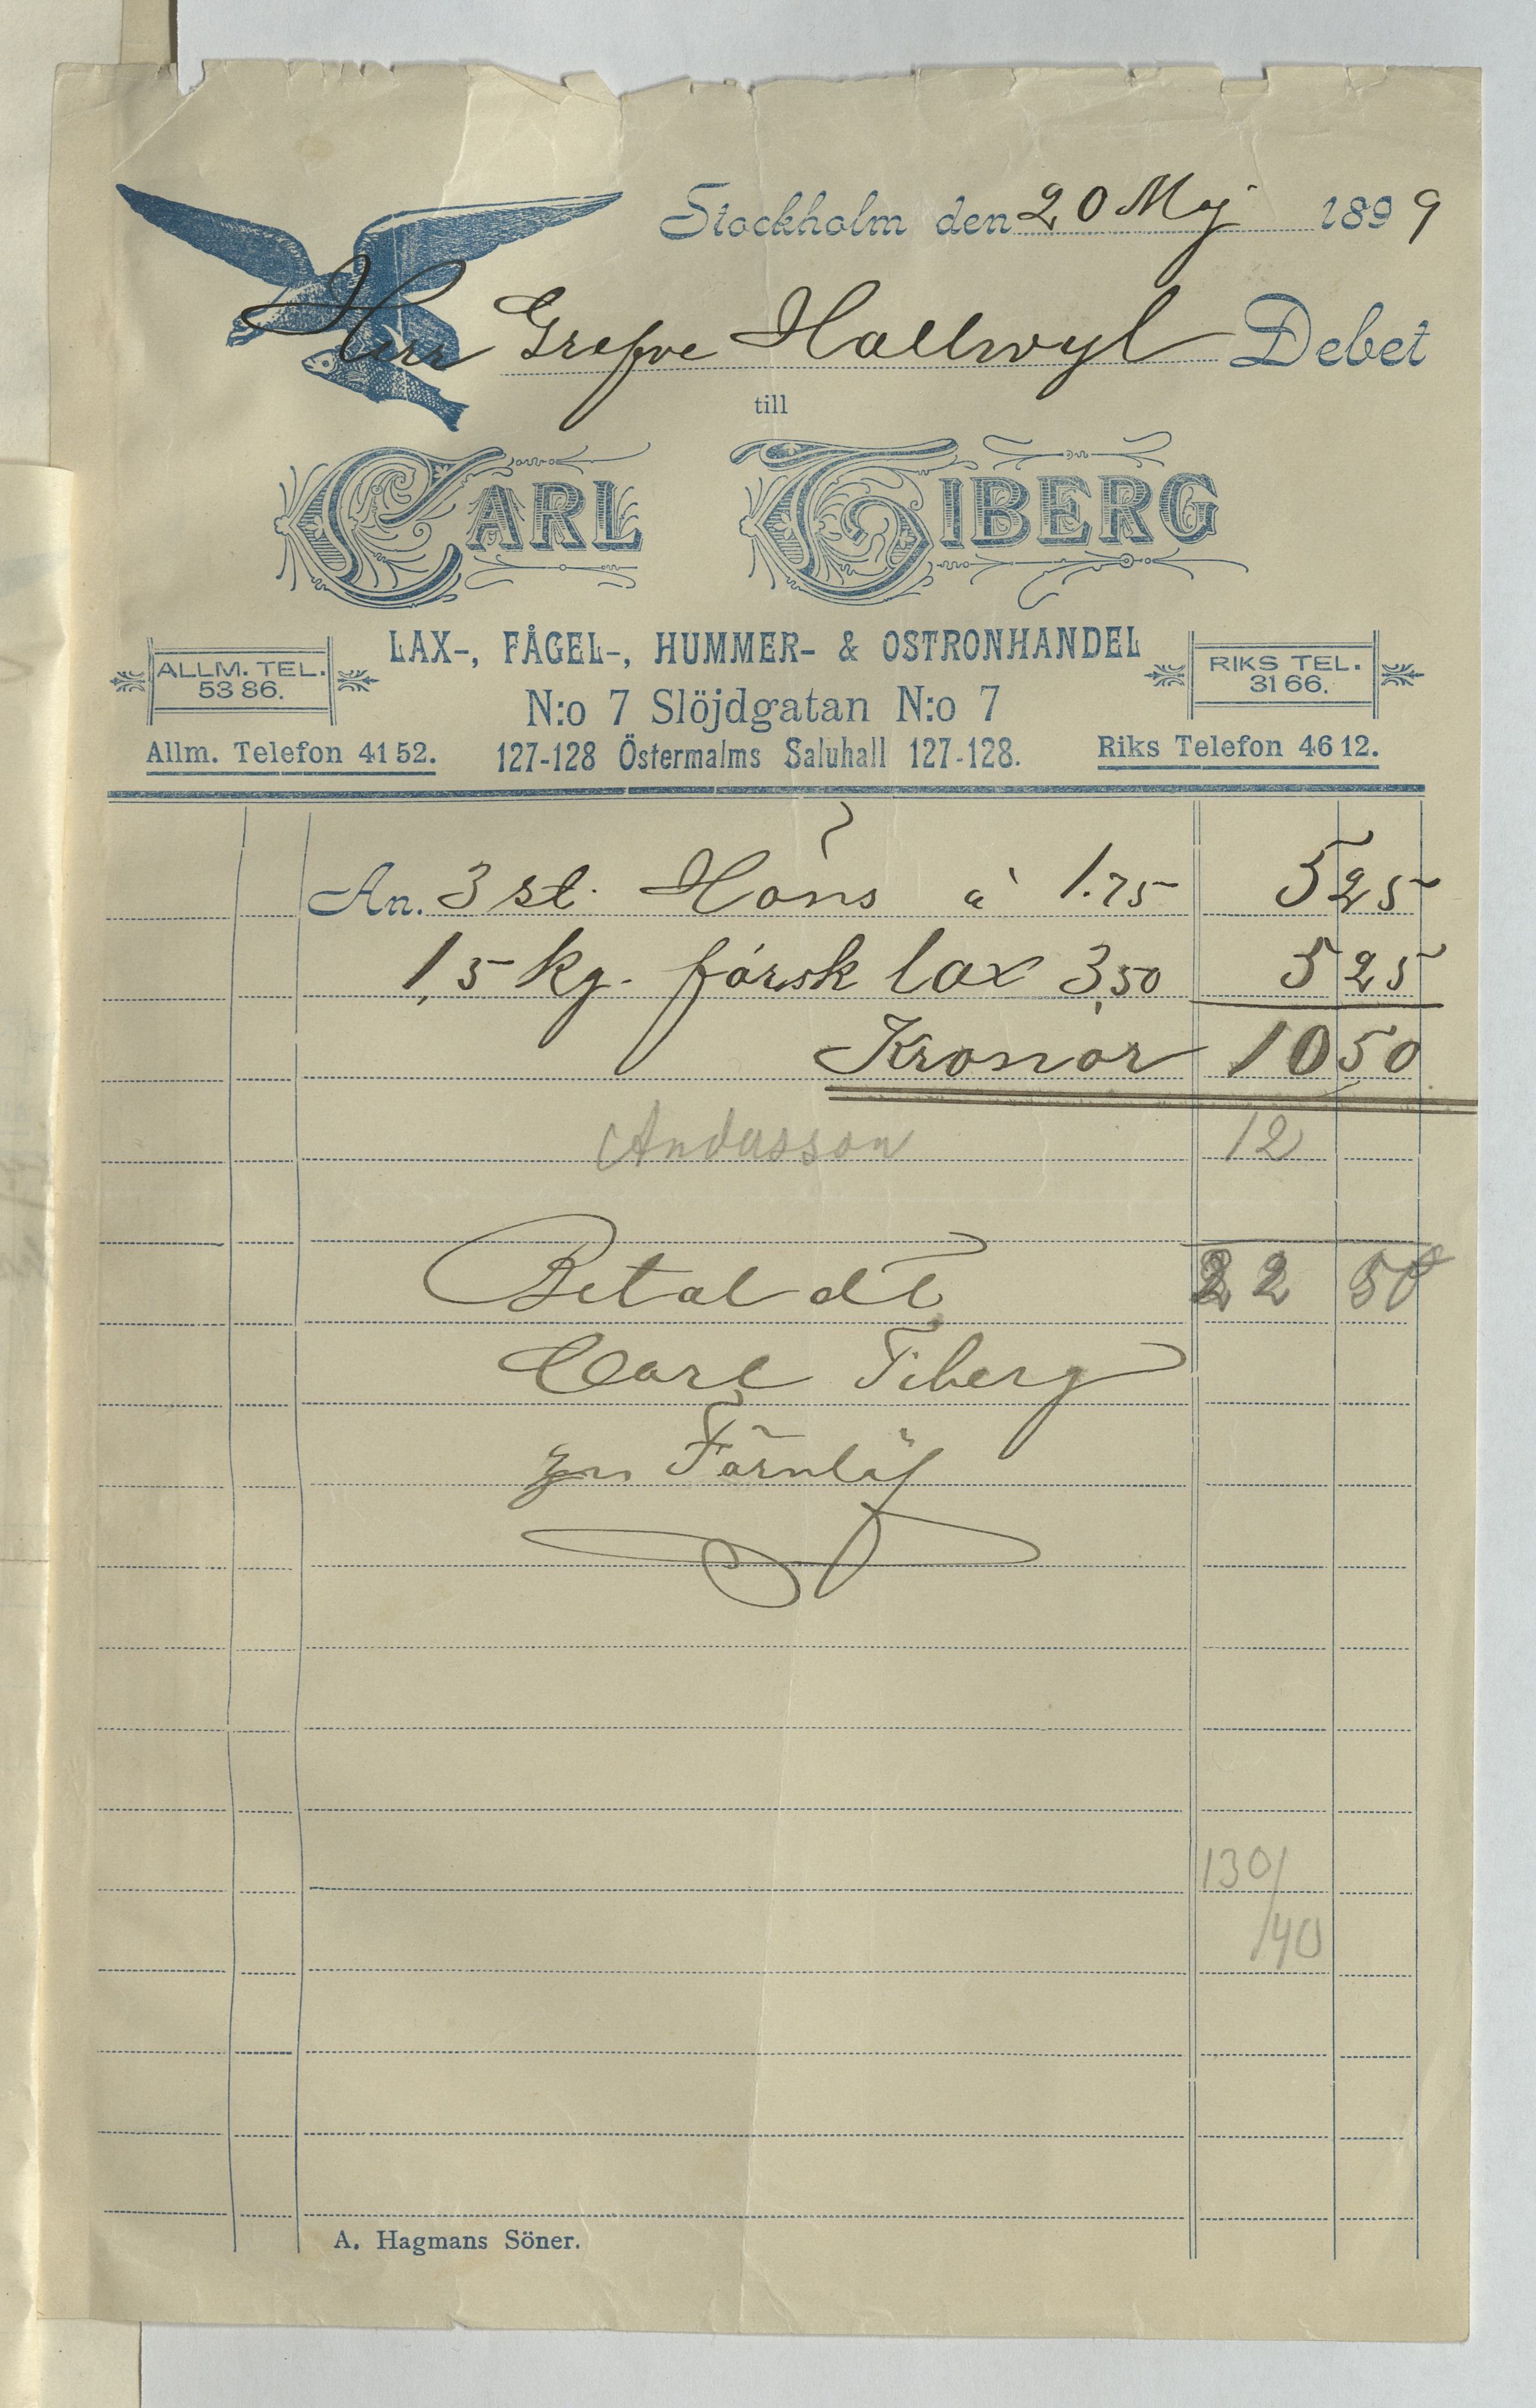 Stockholm den 20 Maj 1899
Herr Grefve Hallwyl Debet
till
CARL TIBERG
LAX-, FÅGEL-, HUMMER- & OSTRONHANDEL
ALLM. TEL. 5386.
RIKS TEL. 3166.
N:o 7 Slöjdgatan N:o 7
Allm. Telefon 4152. 127-128 Östermalms Saluhall 127-128. Riks Telefon 4612.
An. 3 st. Höns à 1.75 5 25
1,5 kg. färsk lax 3,50 5 25
Kronor 10 50
Andersson 12
22 50
Betaldt
Carl Tiberg
130/
140
A. Hagmans Söner.